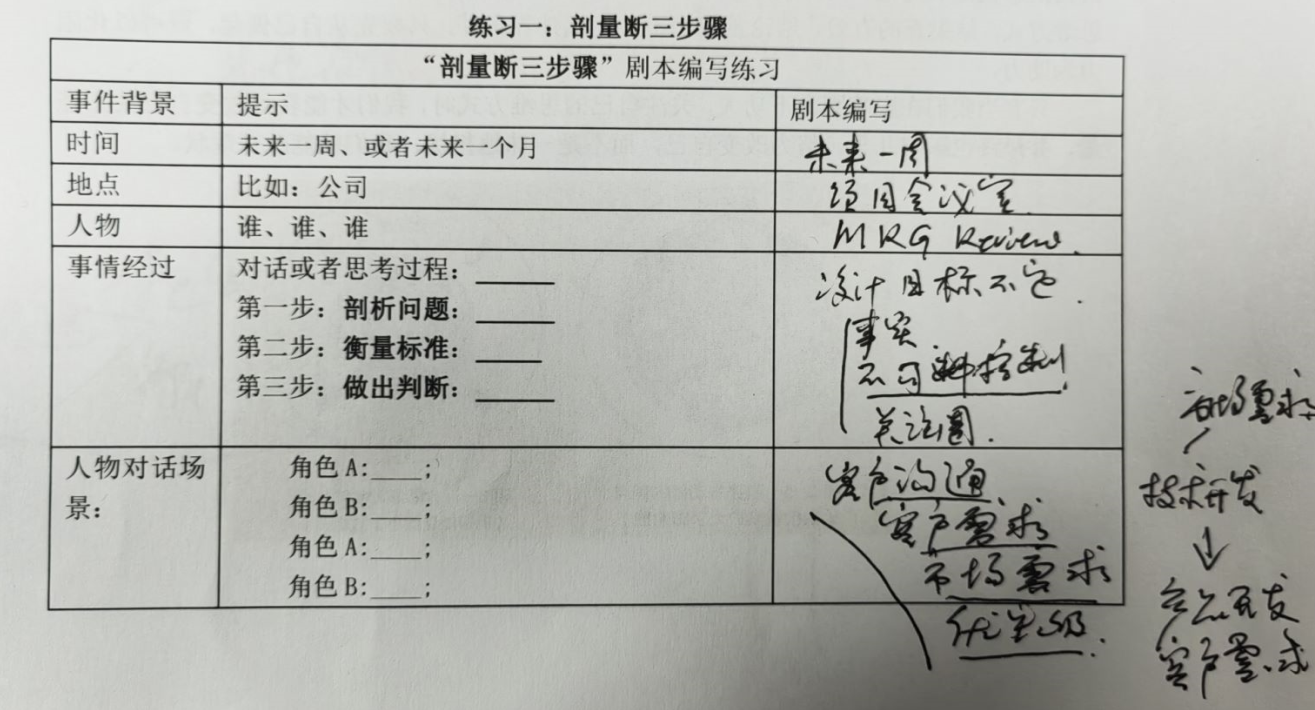 练习一：剖量断三步骤
“剖量断三步骤”剧本编写练习
事件背景 提示 剧本编写
时间 未来一周、或者未来一个月 未来一周
地点 比如：公司 项目会议室
人物 谁、谁、谁 MRG Review.
事情经过 对话或者思考过程：______ 设计目标不定.
第一步：剖析问题：______ 事实
第二步：衡量标准：_____ 不可控制
第三步：做出判断：______ 关注圈.
人物对话场景：
角色 A:____; 客户沟通
角色 B:____; 客户需求
角色 A:____; 市场需求
角色 B:____; 优先级.
市场需求
技术开发
↓
开发
客户需求